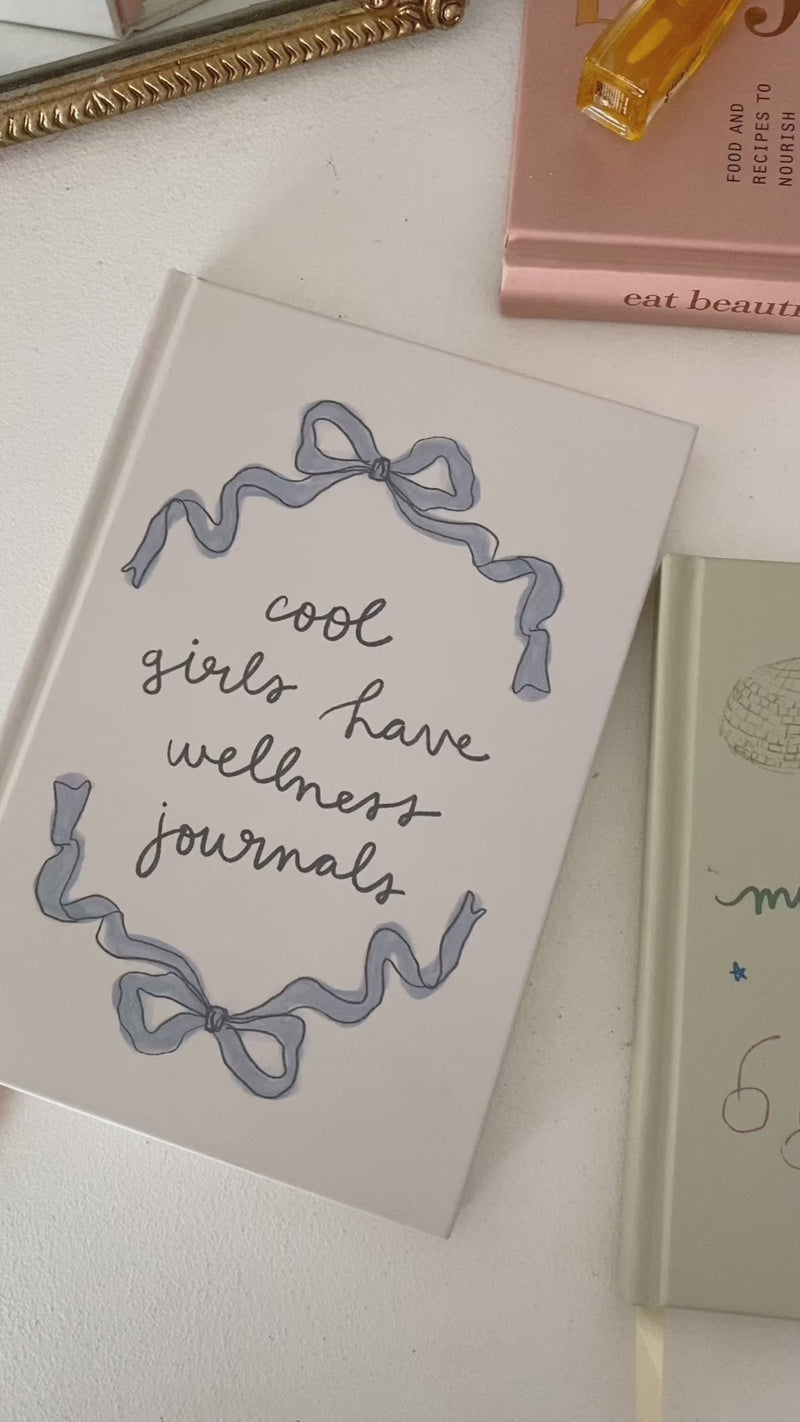 FOOD AND
RECIPES TO
NOURISH
eat beauti
cool
girls have
wellness
journals